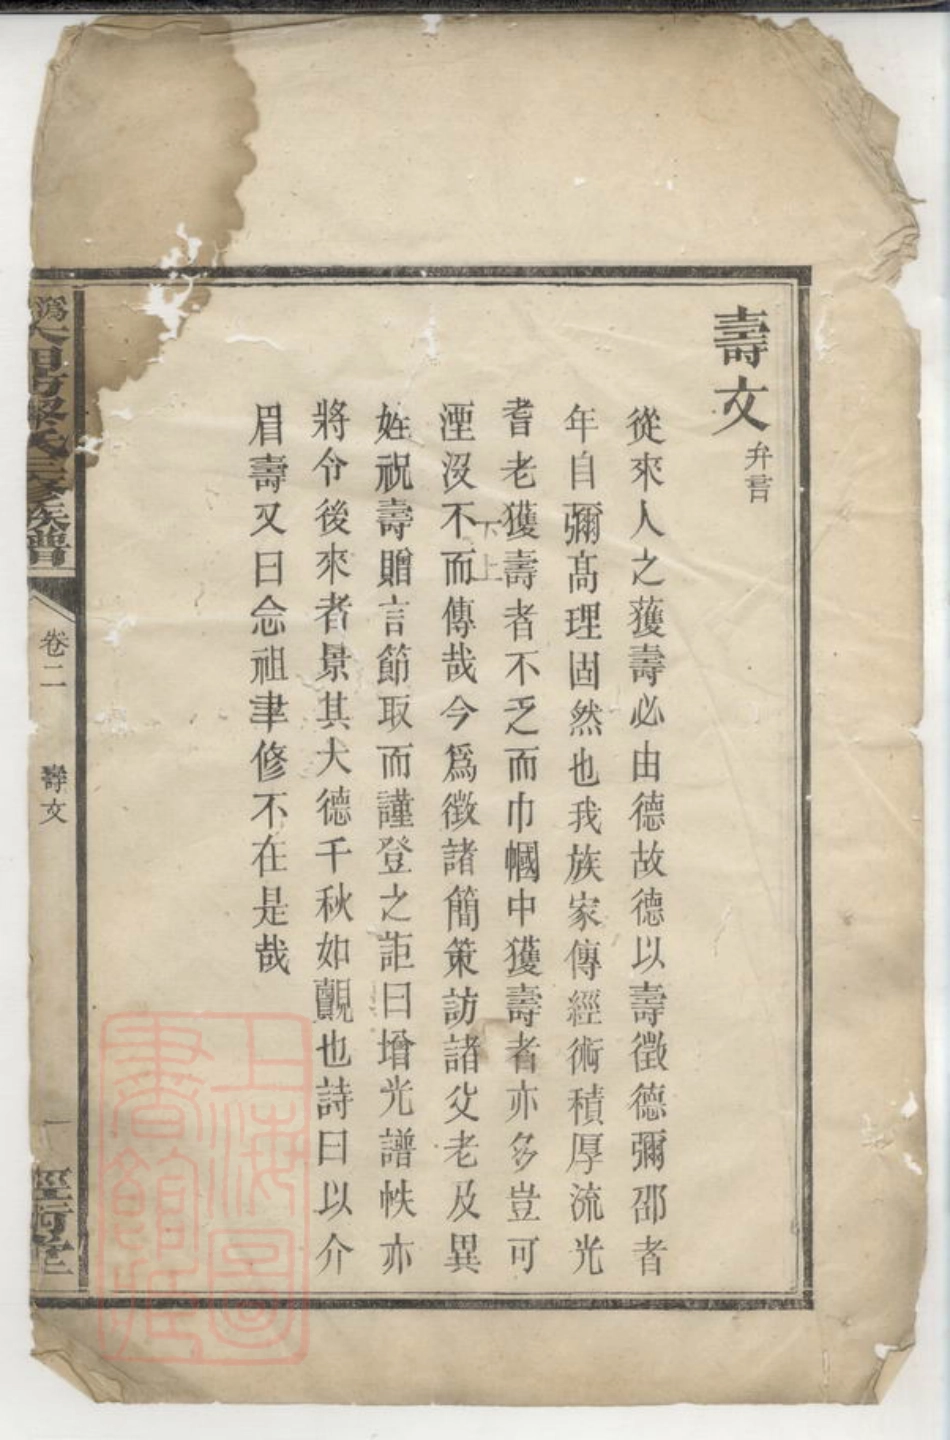 壽文
弁言
從來人之獲壽必由德故德以壽徵德彌邵者
年自彌髙理固然也我族家傳經術積厚流光
耆老獲壽者不乏而巾幗中獲壽者亦多豈可
湮沒不而傳哉今爲徵諸簡策訪諸父老及異
下上
姓祝壽贈言節取而謹登之詎曰增光譜帙亦
將令後來者景其大德千秋如覿也詩曰以介
眉壽又曰念祖聿修不在是哉
氏三修族譜
卷二
壽文
一
經術堂
上海圖
書館藏